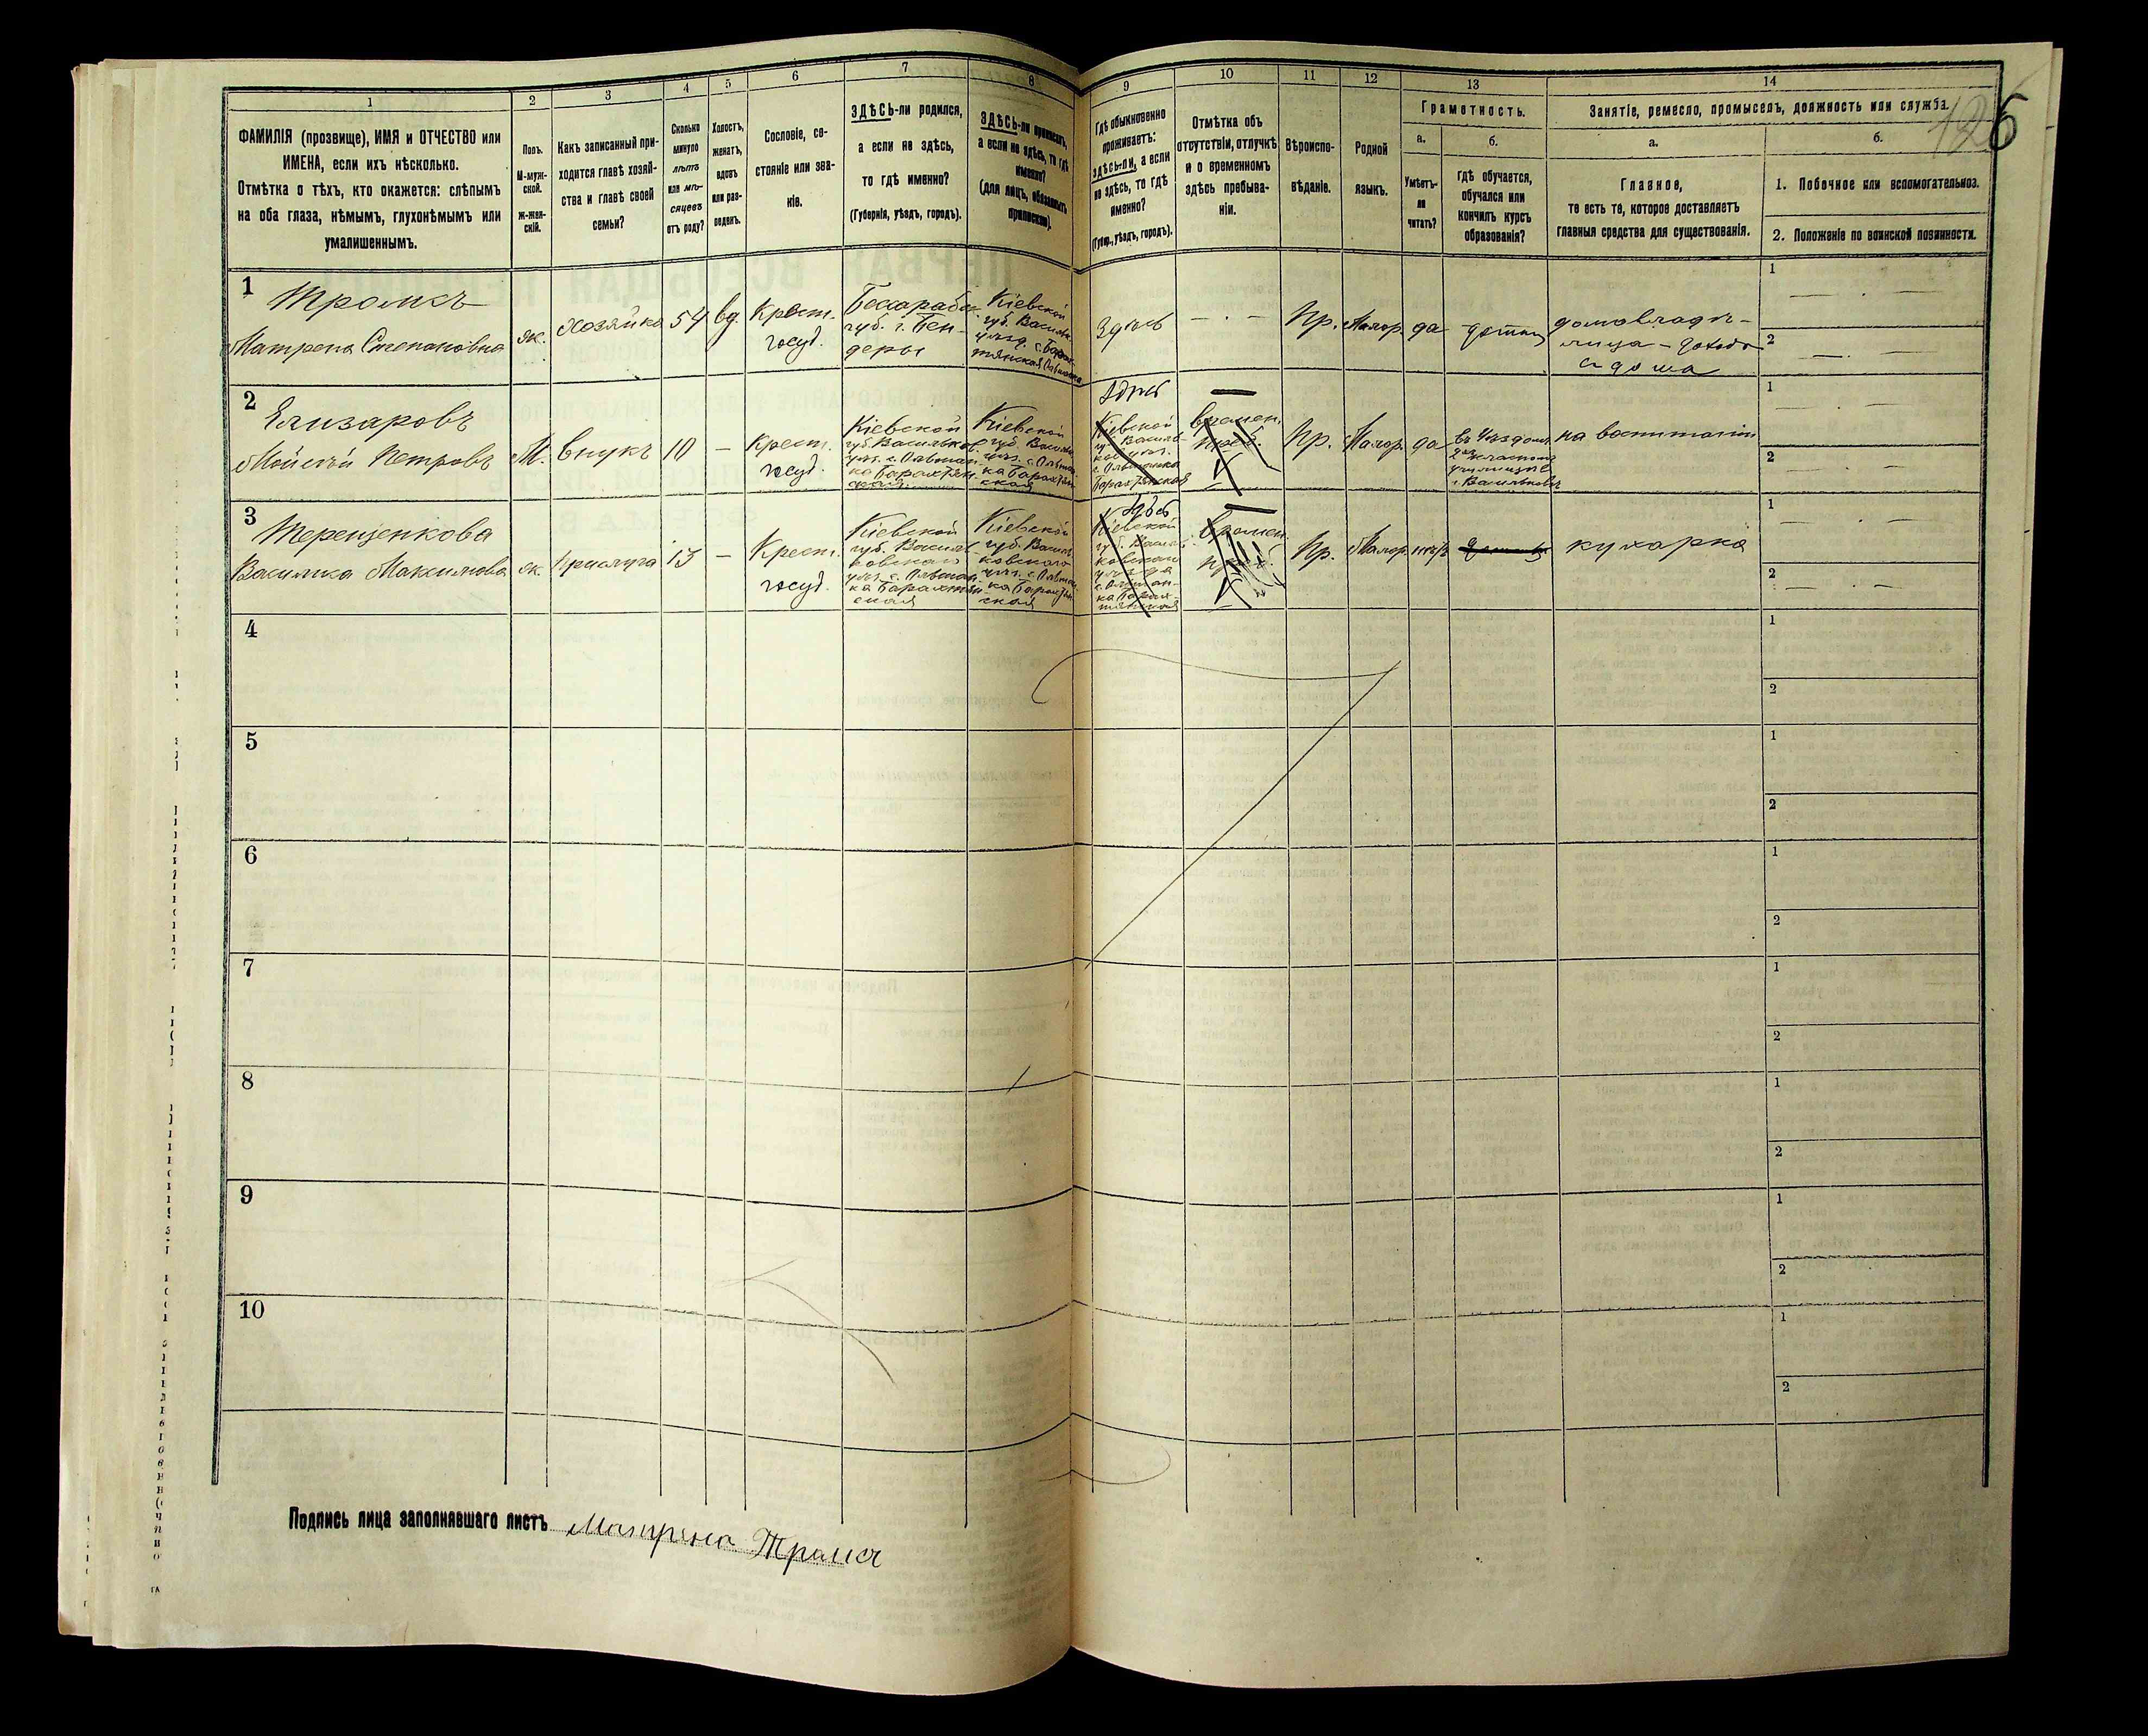 1
2
3
4
5
6
7
8
9
10
11
12
13
14
ФАМИЛІЯ (прозвище), ИМЯ и ОТЧЕСТВО или
ИМЕНА, если ихъ нѣсколько.
Отмѣтка о тѣхъ, кто окажется: слѣпымъ
на оба глаза, нѣмымъ, глухонѣмымъ или
умалишеннымъ.
Полъ.
М-муж-
ской.
Ж-жен-
скій.
Какъ записанный при-
ходится главѣ хозяй-
ства и главѣ своей
семьи?
Сколько
минуло
лѣтъ
или мѣ-
сяцевъ
отъ роду?
Холостъ,
женатъ,
вдовъ
или раз-
веденъ.
Сословіе, со-
стояніе или зва-
ніе.
ЗДѢСЬ-ли родился,
а если не здѣсь,
то гдѣ именно?
(Губернія, уѣздъ, городъ).
ЗДѢСЬ-ли приписанъ,
а если не здѣсь, то гдѣ
именно?
(для лицъ, обязанныхъ
припискою).
Гдѣ обыкновенно
проживаетъ:
здѣсь-ли, а если
не здѣсь, то гдѣ
именно?
(Губер., уѣздъ, городъ).
Отмѣтка объ
отсутствіи, отлучкѣ
и о временномъ
здѣсь пребыва-
ніи.
Вѣроиспо-
вѣданіе.
Родной
языкъ.
Грамотность.
а.
Умѣетъ-
ли
читать?
б.
гдѣ обучается,
обучался или
кончилъ курсъ
образованія?
Занятіе, ремесло, промыселъ, должность или служба.
а.
Главное,
то есть то, которое доставляетъ
главныя средства для существованія.
б.
1. Побочное или вспомогательное.
2. Положеніе по воинской повинности.
126
1
Тромсъ
Матрена Степановна
ж.
хозяйка
54
вд.
Крест.
госуд.
Бессарабс.
губ. г. Бен-
деры
Кіевской
губ. Васильк.
здѣсь
Пр.
Малор.
да
дома
домовладѣ-
лица - доходъ
съ дома
1
2
2
Елизаровъ
Мойсей Петровъ
М.
внукъ
10
Крест.
госуд.
Кіевской
губ. Васильков.
Кіевской
губ. Васильк.
здѣсь
Кіевской
времен.
преб.
Пр.
Малор.
да
училищѣ
г. Васильковъ
на воспитаніи
1
2
3
Терещенкова
Василиса Максимова
ж.
прислуга
13
Крест.
госуд.
Кіевской
губ. Василь-
ковскаго
Кіевской
губ. Василь-
ковскаго
здѣсь
Кіевской
времен.
Пр.
Малор.
нѣтъ
кухарка
1
2
4
1
2
5
1
2
6
1
2
7
1
2
8
1
2
9
1
2
10
1
2
Подпись лица заполнявшаго листъ Матрена Тромсъ